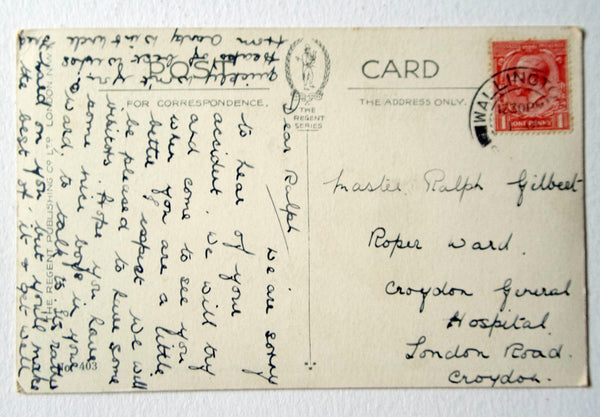 POST CARD
FOR CORRESPONDENCE.
THE ADDRESS ONLY.
THE
REGENT
SERIES
Dear Ralph
We are sorry
to hear of your
accident. We will try
and come to see you
when you are a little
better. I expect we will
be pleased to have some
visitors. Hope you have
some nice boys in your
ward, to talk to. Its rather
hard on you but you'll make
the best of it & get well
quickly won't you.
Heaps of best wishes
from Aunty Win & Uncle
Fred
THE REGENT PUBLISHING CO LTD LONDON
403
Master Ralph Gilbert
Roper Ward.
Croydon General
Hospital.
London Road.
Croydon.
WALLINGTO
1 ONE PENNY 1